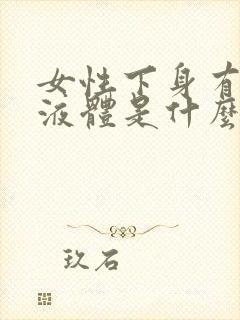 女性下身有
液體是什麼
玖石